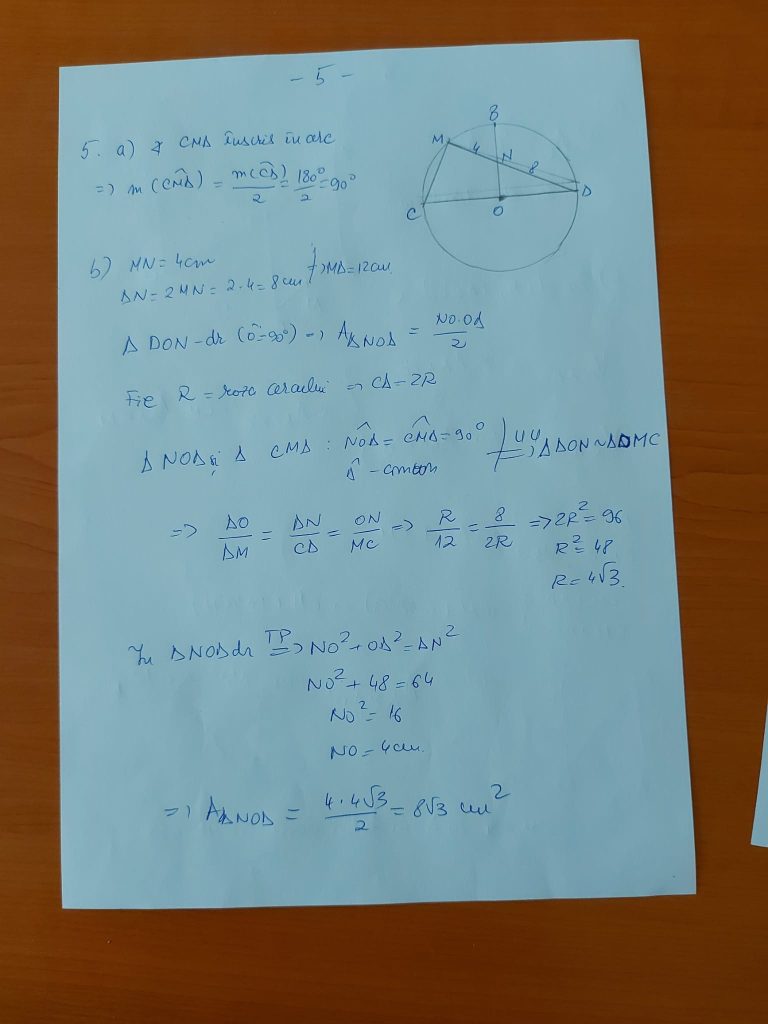 - 5 -
5. a) ∢ CMD înscris în arc
=> m(CMD) = m(CD)/2 = 180°/2 = 90°
B
M
4
N
8
C
O
D
b) MN = 4cm
DN = 2MN = 2·4 = 8cm => MD = 12cm.
Δ DON - dr (Ô=90°) => AΔNOD = NO·OD/2
Fie R = raza cercului => CD = 2R
Δ NOD și Δ CMD : NOD = CMD = 90°
D̂ - comun
UU => ΔDON ~ ΔDMC
=> DO/DM = DN/CD = ON/MC => R/12 = 8/2R => 2R² = 96
R² = 48
R = 4√3.
În ΔNOD dr TP => NO² + OD² = DN²
NO² + 48 = 64
NO² = 16
NO = 4cm.
=> AΔNOD = 4·4√3/2 = 8√3 cm²